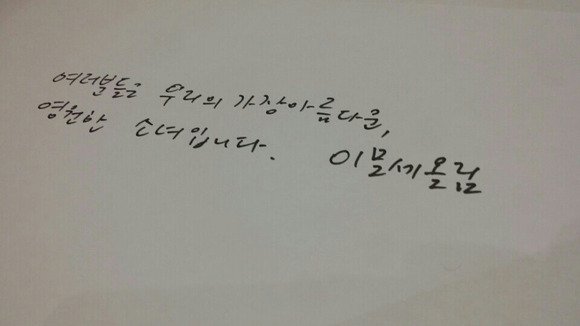 여러분들은 우리의 가장 아름다운,
영원한 소녀입니다.
이문세 올림